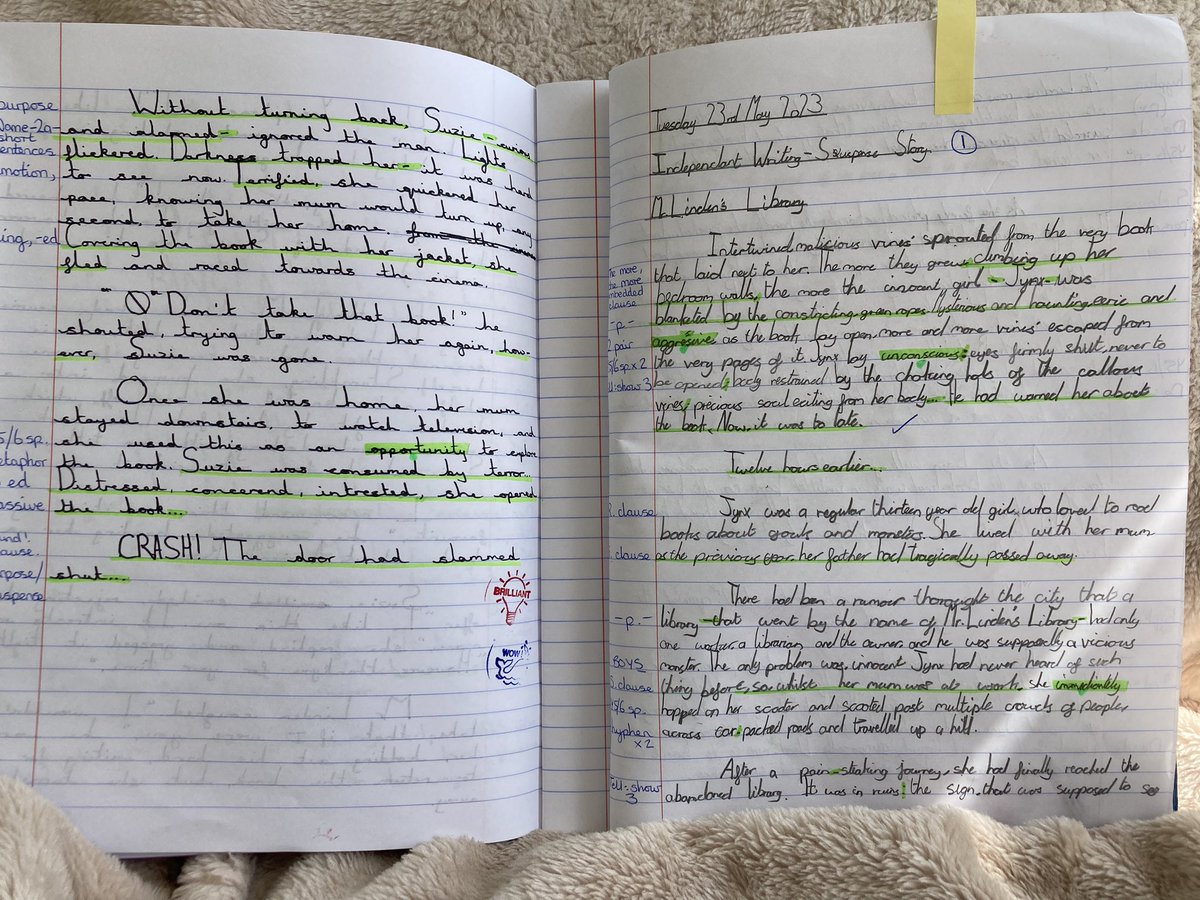 purpose
short
entences
motion,
ing, -ed
5/6 sp.
etaphor
ed
assive
ause.
rpose/
uspense
Without turning back, Suzie - curious
and alarmed - ignored the man. Lights
flickered. Darkness trapped her - it was hard
to see now. Terrified, she quickened her
pace, knowing her mum would turn up, any
second to take her home. from the
Covering the book with her jacket, she
fled and raced towards the cinema.
"Don't take that book!" he
shouted, trying to warn her again, how-
ever, Suzie was gone.
Once she was home, her mum
stayed downstairs, to watch television, and
she used this as an opportunity to explore
the book. Suzie was consumed by terror...
Distressed, concerend, intrested, she opened
the book...
CRASH! The door had slammed
shut....
BRILLIANT
WOW!
Tuesday 23rd May 2023
Independant Writing - Suspense Story. 1
Mr Linden's Library
Intertwined malicious vines' sprouted from the very book
that laid next to her. The more they grew, climbing up her
bedroom walls, the more the innocent, girl - Jynx - was
blanketed by the constricting green ropes. Mysterious and haunting, eerie and
aggresive, as the book lay open, more and more vines' escaped from
the very pages of it. Jynx lay unconscious: eyes firmly shut, never to
be opened; body restrained by the choking holds of the callous
vines; precious soul exiting from her body... He had warned her about
the book. Now, it was to late.
Twelve hours earlier...
Jynx was a regular thirteen year old girl, who loved to read
books about ghouls and monsters. She lived with her mum
as the previous year her father had tragically passed away.
There had been a rumour the city that a
library - that went by the name of Mr. Linden's Library - had only
one worker: a librarian, and the owner, and he was supposedly a vicious
monster. The only problem was, innocent Jynx had never heard of such
thing before, so whilst her mum was at work, she immediately
hopped on her scooter and scooted past multiple crowds of people,
across car-packed roads and travelled up a hill.
After a pain-staking journey, she had finally reached the
abandoned library. It was in ruins: the sign that was supposed to say
he more,
he more
mbedded
clause
-p-
2 pair
5/6 sp x 2
ll:show 3
R. clause
S. clause
-p.-
BOYS
S. clause
5/6 sp.
hyphen
x2
ell:show
3